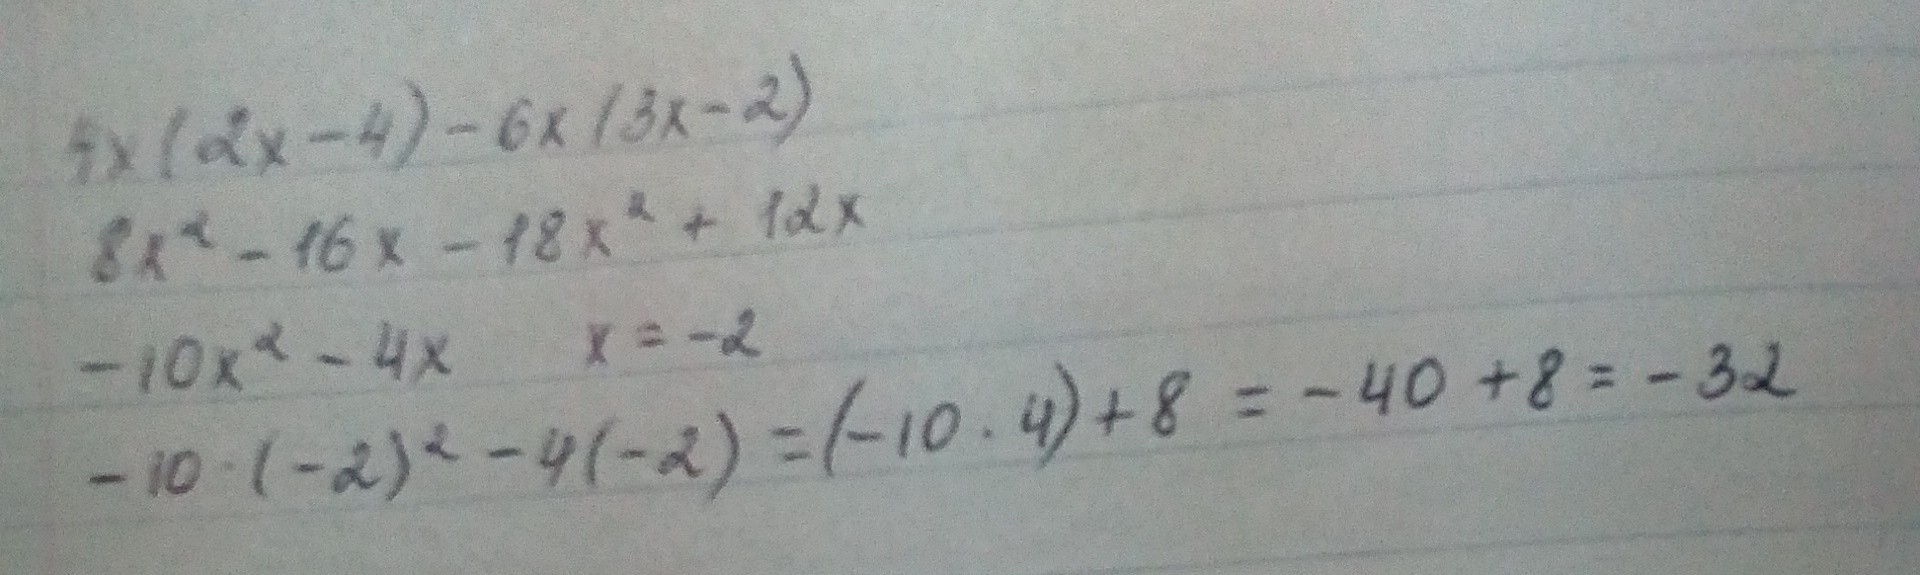 4x(2x-4)-6x(3x-2)
8x² - 16x - 18x² + 12x
-10x² - 4x x = -2
-10·(-2)² - 4(-2) = (-10·4)+8 = -40+8 = -32